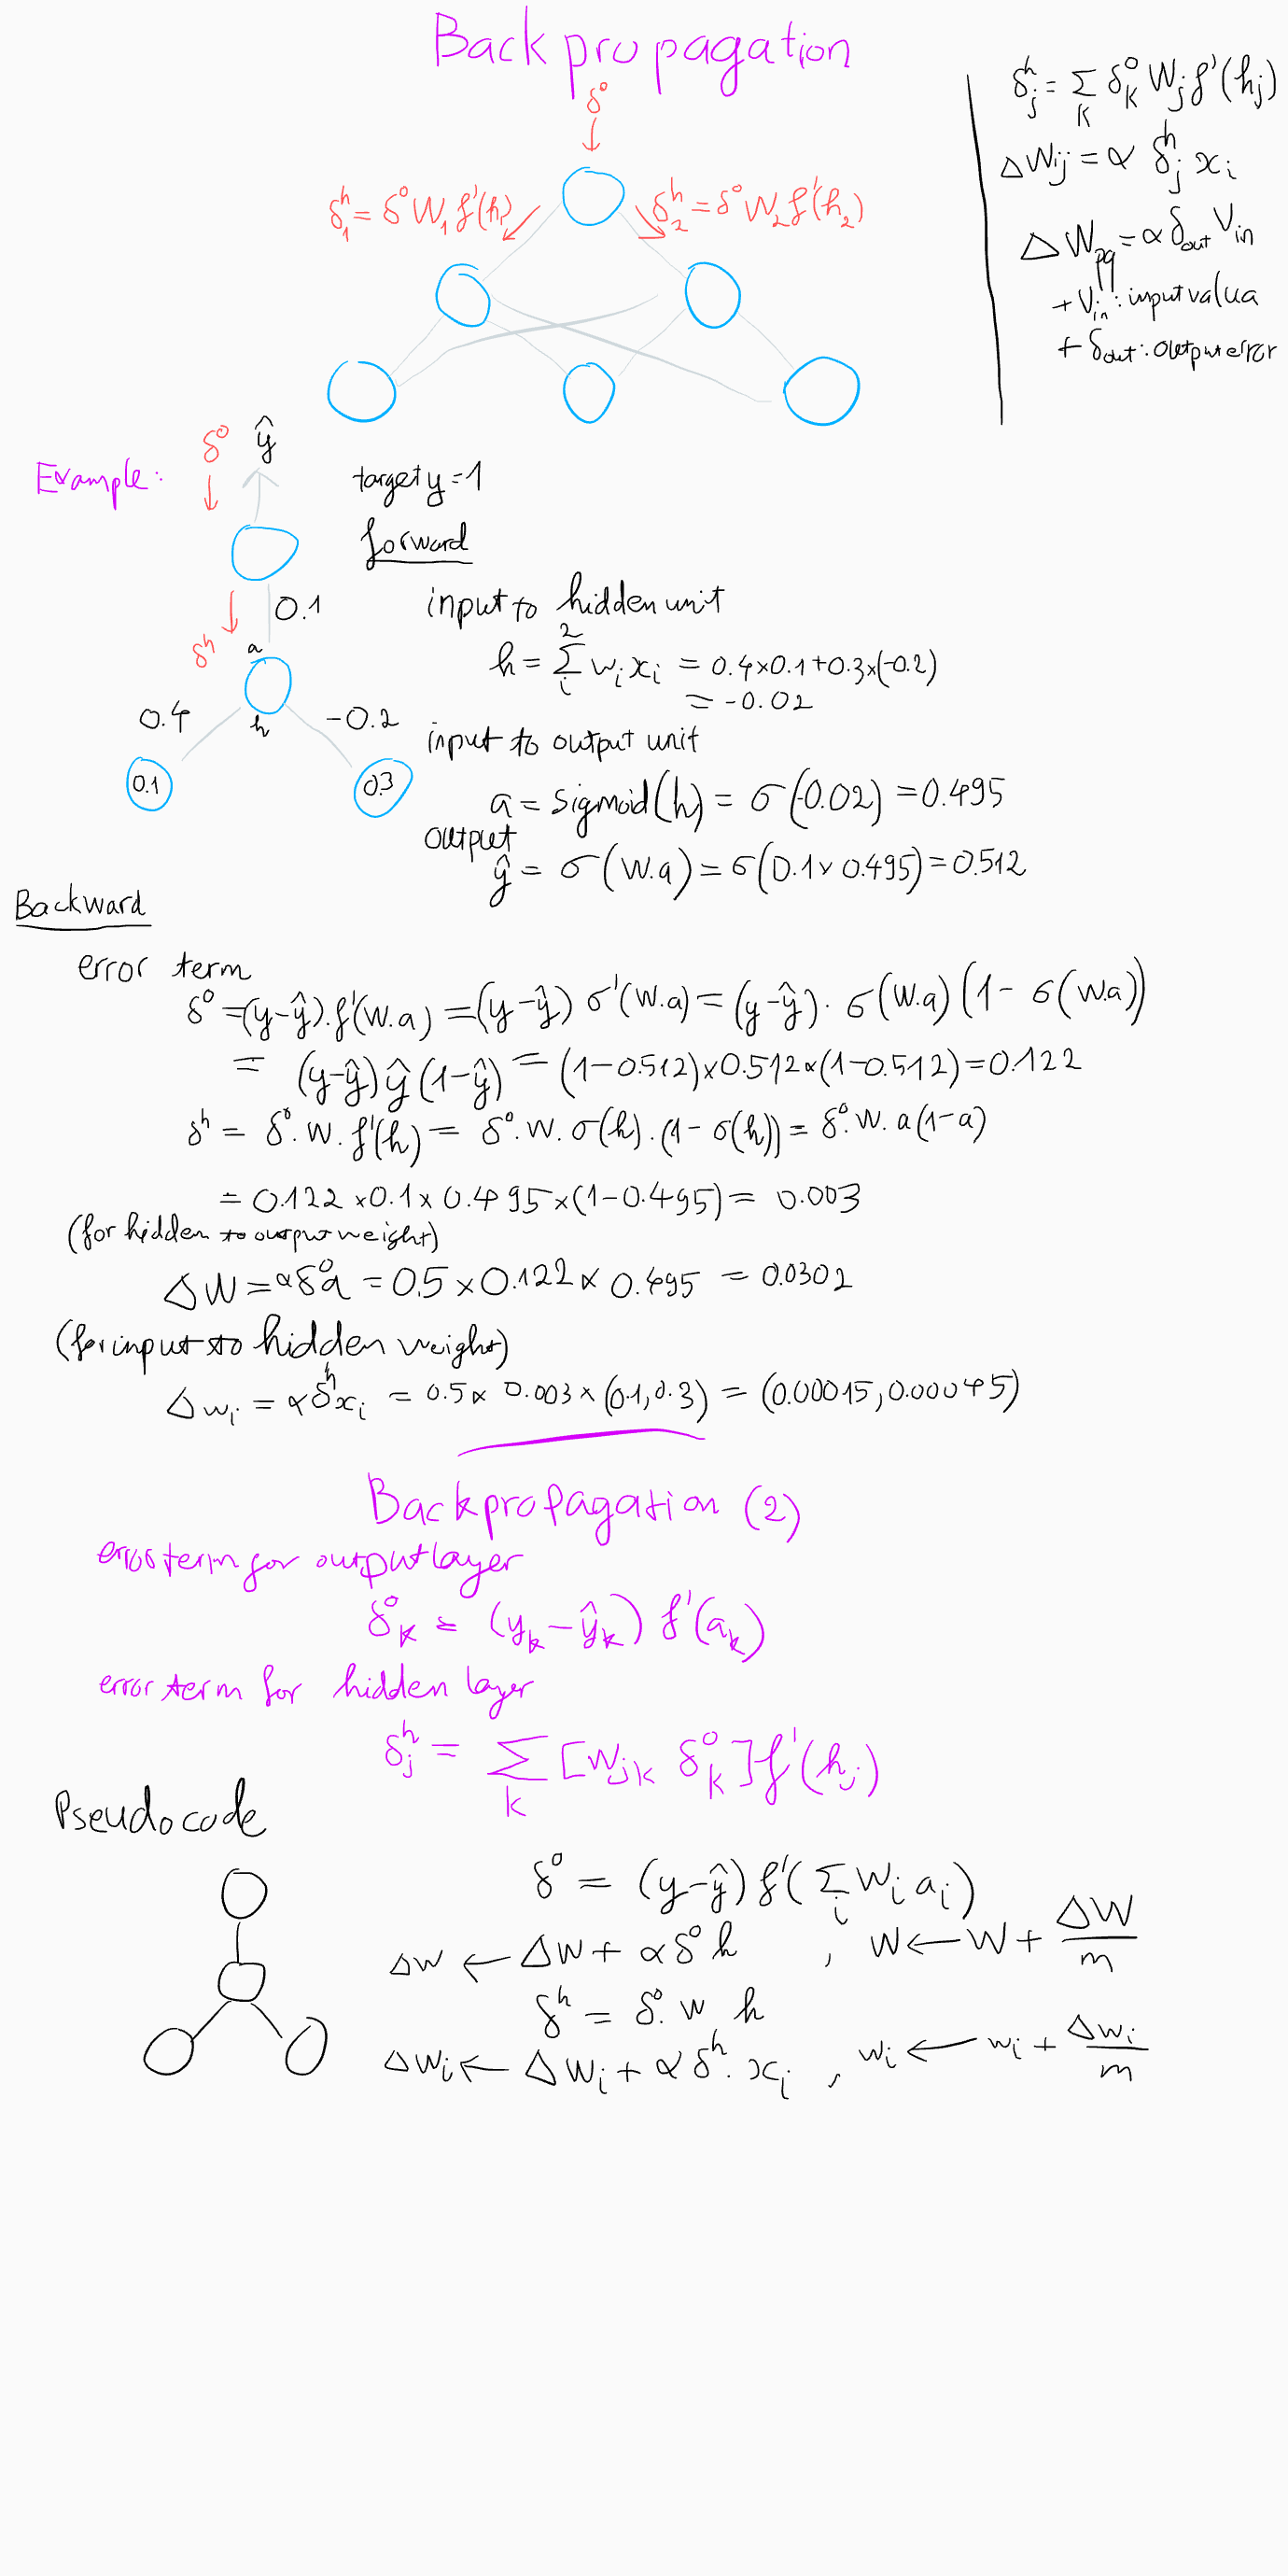 Backpropagation
δ°
δ₁ʰ = δ°W₁f'(h)
δ₂ʰ = δ°W₂f'(h₂)
δⱼʰ = Σ_K δ_K° Wⱼ f'(hⱼ)
ΔWij = α δⱼʰ xᵢ
ΔW_pq = α δ_out V_in
+ V_in : input valua
+ δout : output error
Example:
δ° ŷ
0.1
δʰ a
0.4 h -0.2
0.1 0.3
target y = 1
forward
input to hidden unit
h = Σᵢ² wᵢxᵢ = 0.4×0.1+0.3×(-0.2)
= -0.02
input to output unit
a = sigmoid(h) = σ(-0.02) = 0.495
output
ŷ = σ(W.a) = σ(0.1×0.495) = 0.512
Backward
error term
δ° = (y-ŷ).f'(W.a) = (y-ŷ) σ'(W.a) = (y-ŷ). σ(W.a)(1- σ(W.a))
= (y-ŷ)ŷ(1-ŷ) = (1-0.512)×0.512×(1-0.512) = 0.122
δʰ = δ°.W.f'(h) = δ°.W.σ(h).(1-σ(h)) = δ°.W.a(1-a)
= 0.122×0.1×0.495×(1-0.495) = 0.003
(for hidden to output weight)
ΔW = αδ°a = 0.5×0.122×0.495 = 0.0302
(for input to hidden weight)
Δwᵢ = αδʰxᵢ = 0.5×0.003×(0.1,0.3) = (0.00015,0.00045)
Backpropagation (2)
error term for output layer
δ_k° = (y_k-ŷ_k) f'(a_k)
error term for hidden layer
δⱼʰ = Σ_k [Wjk δ_k°]f'(hⱼ)
Pseudocode
δ° = (y-ŷ) f'(Σᵢ Wᵢ aᵢ)
ΔW ← ΔW + αδ°h , W ← W + ΔW/m
δʰ = δ°.w h
Δwᵢ ← Δwᵢ + αδʰ.xᵢ , wᵢ ← wᵢ + Δwᵢ/m